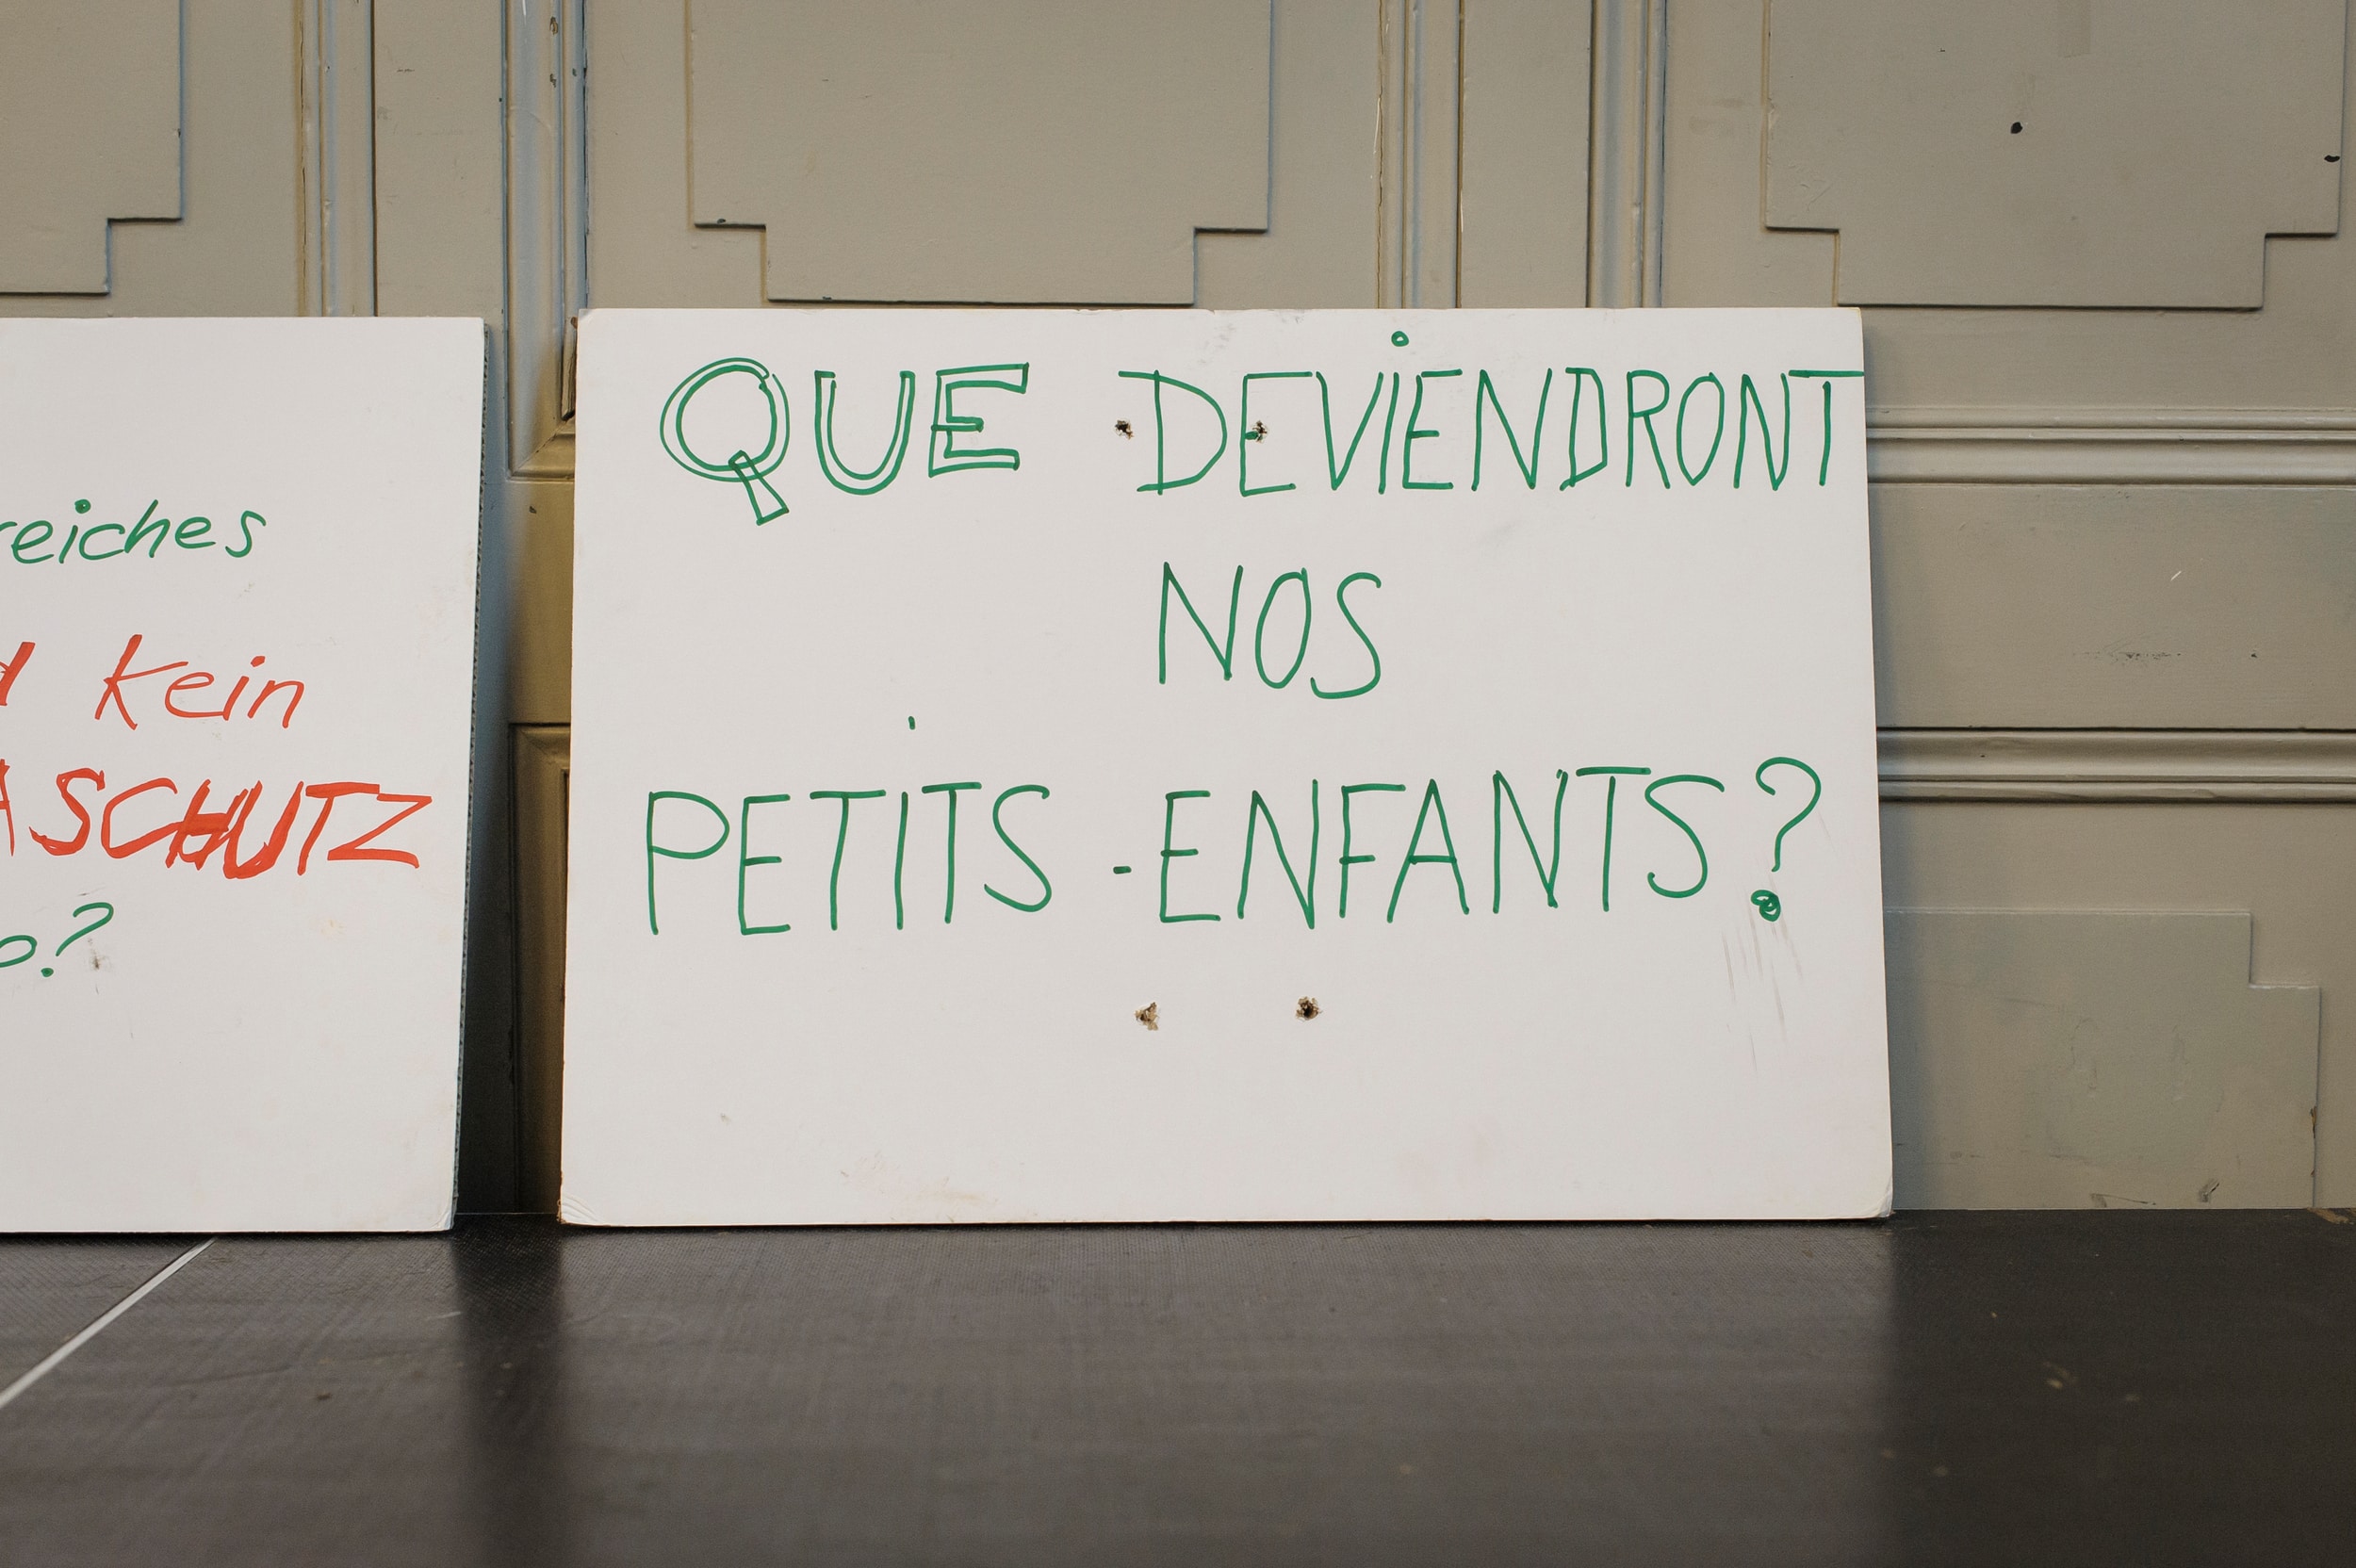 reiches
kein
SCHUTZ
?
QUE DEVIENDRONT
NOS
PETITS-ENFANTS?